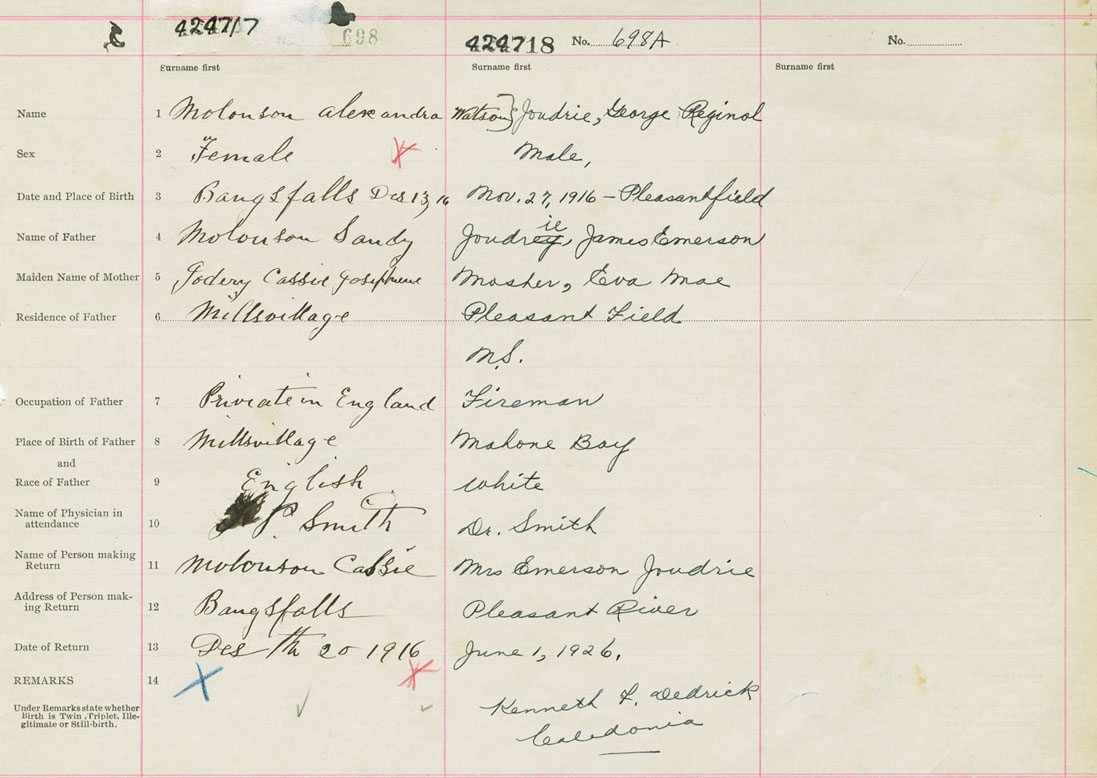 424717 No. 698
424718 No. 698A
No.
Surname first Surname first Surname first
Name 1 Molonson Alexandra Watson} Joudrie, George Reginol
Sex 2 Female Male,
Date and Place of Birth 3 Bangsfalls Des 13, 16 Nov. 27, 1916 – Pleasantfield
Name of Father 4 Molonson Sandy Joudrey ie, James Emerson
Maiden Name of Mother 5 Cassie Josephine Mosher, Eva Mae
Residence of Father 6 Millsvillage Pleasant Field
N.S.
Occupation of Father 7 Privcate in England Fireman
Place of Birth of Father 8 Millsvillage Mahone Bay
and
Race of Father 9 English White
Name of Physician in
attendance 10 Smith Dr. Smith
Name of Person making
Return 11 Molonson Cassie Mrs Emerson Joudrie
Address of Person mak-
ing Return 12 Bangsfalls Pleasant River
Date of Return 13 Des th 20 1916 June 1, 1926.
REMARKS 14
Under Remarks state whether
Birth is Twin, Triplet, Ille-
gitimate or Still-birth.
Kenneth F. Dedrick
Caledonia